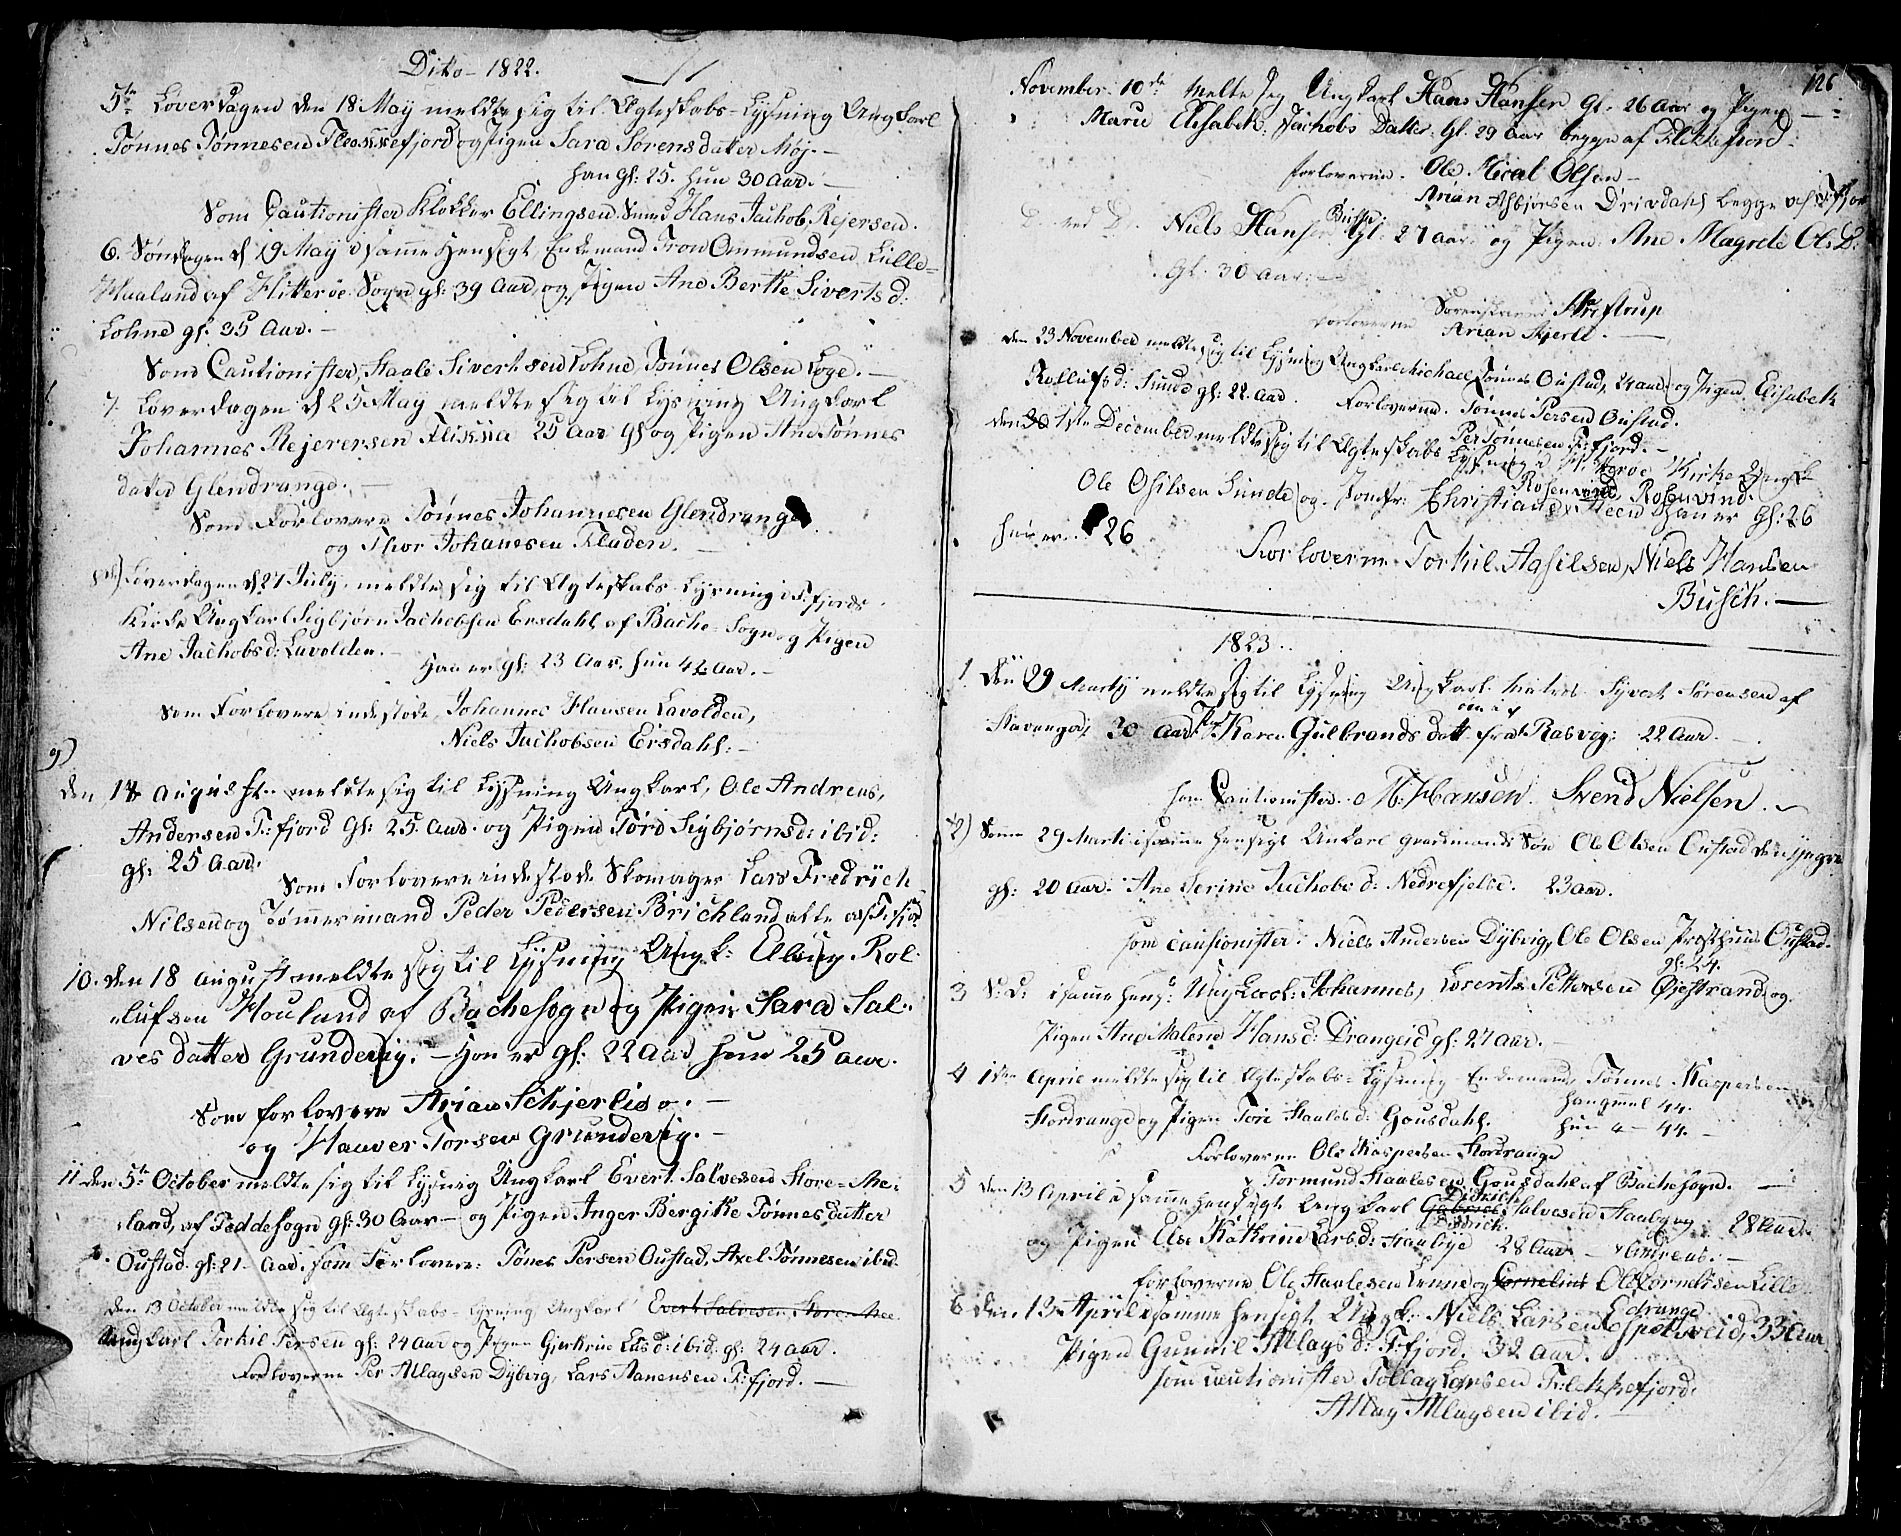 Dito 1822.
5te Løverdagen den 18 May meldte sig til Ægteskabs-Lysning Ungkarl
Tønnes Tønnesen Fleckkefjord og Pigen Sara Sørensdatter Møj. —
han gl: 25. hun 30 Aar. —
Som Cautionister Klokker Ellingsen Smed Hans Jachob Rejersen.
6. Søndagen d 19 May i samme Hensigt Enkemand Tron Ommundsen Lille-
Haaland af Hitterøe Sogn gl: 39 Aar, og Pigen Ane Berthe Siverts d:
Lohne gl. 35 Aar. —
Som Cautionister, Staale Sivertsen Lohne, Tønnes Olsen Løge. —
7. Løverdagen d 25 May meldte sig til Lysning Ungkarl
Johannes Rejerersen Flikka 25 Aar gl og Pigen Ane Tønnes
datter Glendrange. —
Som Forlovere Tønnes Johannesen Glendrange
og Thor Johannesen Fladen. —
Løverdagen d 27 July meldte sig til Ægteskabs-Lysning i F:fjords
Kirke Ungkarl Sigbjørn Jachobsen Ersdahl af Bache-Sogn og Pigen
Ane Jachobsd: Lavolden. —
Han er gl: 23 Aar. hun 42 Aar. —
Som Forlovere indestode, Johannes Hansen Lavolden,
Niels Jachobsen Ersdahl: —
9)
den 18 August meldte sig til Lysning Ungkarl, Ole Andreas,
Andersen F:fjord Gl: 25 Aar. og Pigen Tørd Sigbjørnsd: ibid:
gl: 25 Aar.
Som Forlovere indestode Skomager Lars Fredrich
Nilsen og Tømmermand Peder Pedersen Brichland af F:fjord
10. den 18 August meldte sig til Lysning Ungk: Elling Rol-
lufsen Houland af Bache sogn og Pigen Sara Sal-
ves datter Grundevig. — Han er gl: 22 Aar, hun 25 aar.
Som forlovere Arian Schjerlis o. —
og Haaver Torsen Grundevig. —
11 den 5te October meldte sig til Lysning Ungkarl Evert Salvesen Store-Mei
land, af Feddesogn gl: 30 Aar — og Pigen Inger Bergitte Tønnesdatter
Oustad. gl: 21 Aar. Som Forlovere: Tønes Persen Oustad, Axel Tønnesen ibid
den 13 October meldte sig til Ægteskabs-Lysning Ungkarl Evert Salvesen Store-Mei
Ungkarl Torkil Persen gl: 24 Aar og Pigen ibid. gl: 24 aar.
Forloverne Per Allagsen Dyberg, Lars Aanensen F:fjord. —
126
November 10de Melte Seg Ungkarl Hans Hansen Gl. 26 Aar og Pigen
Maru Elisabeth Jachobs Datter. Gl. 29 Aar begge af Flikkefiord.
forloverne. Ole Mical Olsen —
Arian Asbjørsen Drivdahl begge af F:fjor
D. ved D. Niels Hansen Busch Gl: 27 aar og Pigen: Ane Magrete Ols D.
Gl. 30 Aar: —
forloverne Sorenskriver Stiftrup
Arian Skjerli. —
den 23 November meldte sig til Lysning Ungkarl Michael Tønnes Oustad, 24 aar og Pigen Elisabeth
Rollufsd: Sunde gl: 22. Aar. Forloverne. Tønnes Persen Oustad.
Per Tønnesen F:fjord. —
den 1ste December meldte sig til Ægteskabs Lysning i Kirke Ungk
Ole Osilsen Sunde og Jomfr: Christiane Rosenvind. han er Gl: 26
hun er 26
Forloverne Torkil Aasilsen, Niels Hansen
Busch. —
1823.
1. den 29 Martij meldte sig til Lysning Ungkarl Sivert Sørensen af
Stavanger 30 Aar Karen Gulbrands datt fra Rasvog: 22 Aar.
som Cautionister M: Hansen. Svend Nielsen. —
2) Samme 29 Marti i samme hensigt Unkarl Søn Ole Olsen Oustad den yngre
gl: 20 Aar. Ane Serine Jachobs d: Nedrefjelde. 23 aar.
som cautionister. Niels Andersen Dybvig, Ole Olsen Oustad.
gl: 24.
3 S: D: i samme hens: Ungkarl: Johannes, Lorents Pettersen Øiestrand og
Pigen Ane Malene Hansd: Drangeid gl: 27 aar. —
4 1den April meldte sig til Ægteskabs-Lysning Enkemand, Tønnes Kaspersen
Stordrange og Pigen Tore Staalesd: Gousdahl.
han gammel 44.
hun — 44. —
Forloverne Ole Kaspersen Stordrange
Tormund Staalesen Gousdahl af Bachesogn. —
5 den 13 April i samme hensigt Ungkarl Gabriel Didrich Salvesen Staaby 28 Aar.
og Pigen Else Kathrine Larsd: Staabye 28 Aar —
forloverne Ole Staalesen Lenne og Cornelius Ole Cornelisen Lille
Edrange.
6 den 13 April i samme hensigt Ungk: Niels Larsen Espetveid, 33 Aar
Pigen Gunnil Allags d: F:fjord. 32 Aar.
som Cautionister Tollag Larsen Flekkefjord.
Allag Allagsen ibid. —